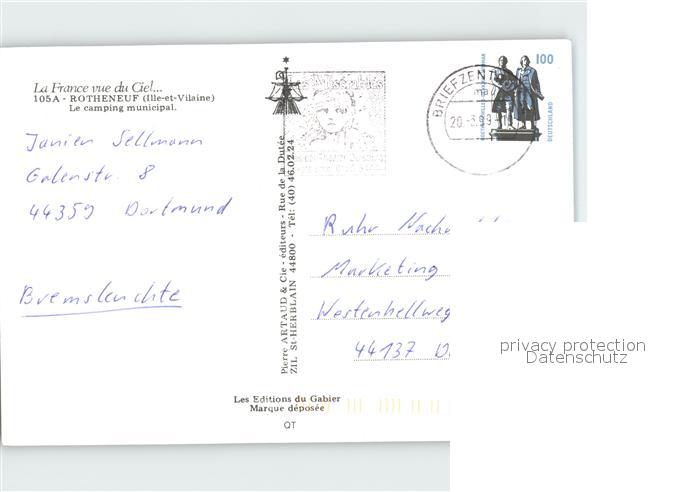 La France vue du Ciel...
105A - ROTHENEUF (Ille-et-Vilaine)
Le camping municipal.
Janien Sellmann
Galenstr. 8
44359 Dortmund
Bremsleuchte
Pierre ARTAUD & Cie - éditeurs - Rue de la Dutée
ZIL St-HERBLAIN 44800 - Tél: (40) 46.02.24
BRIEFZENT
20.-3.99-
100
DEUTSCHLAND
Ruhr Nach
Marketing
Westenhellweg
44137 D
privacy protection
Datenschutz
Les Editions du Gabier
Marque déposée
QT